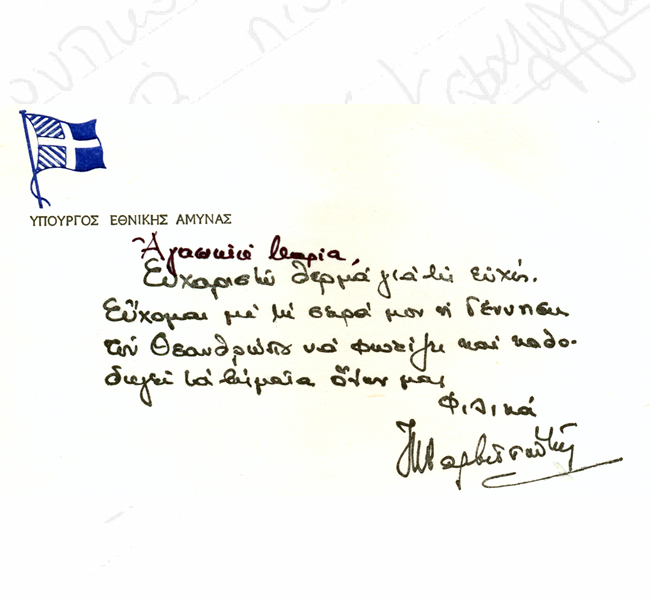 ΥΠΟΥΡΓΟΣ ΕΘΝΙΚΗΣ ΑΜΥΝΑΣ
Ἀγαπητέ
Εὐχαριστῶ θερμά γιά τίς εὐχές.
Εὔχομαι μέ τή σειρά μου ἡ Γέννηση
τοῦ Θεανθρώπου νά φωτίζη καί καθο-
δηγεῖ τά βήματα ὅλων μας
Φιλικά